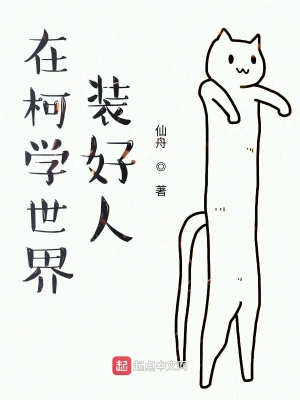 在柯学世界
装好人
仙舟◎著
起 起点中文网